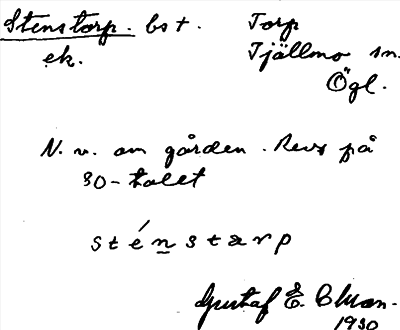 Stenstorp. bst. Torp
ek. Tjällmo sn.
Ögl.
N. v. om gården. Revs på
80-talet
sténstarp
Gustaf E.
1930